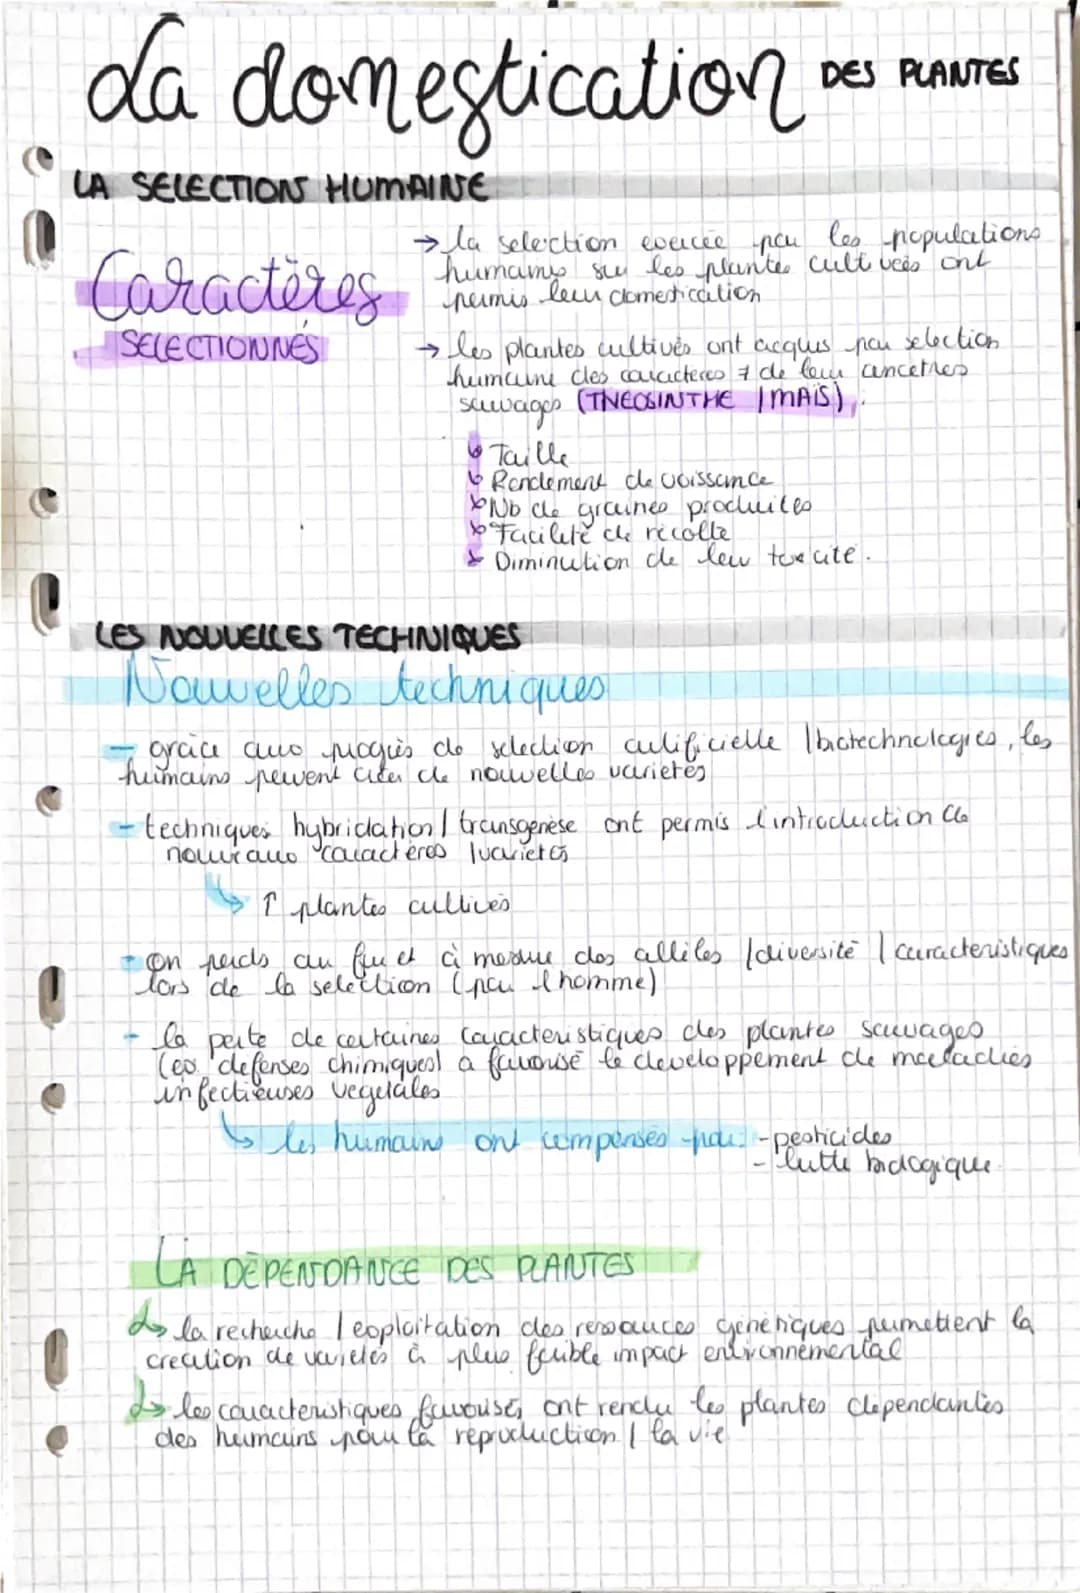 La domestication DES PLANTES
LA SELECTION HUMAINE
Caractères
SELECTIONNÉS
→ la selection exercée par les populations
humaines sur les plantes cultivées ont
permis leur domestication
→ les plantes cultivés ont acquis par selection
humaine des caracteres ≠ de leur ancetres
sauvages (THEOSINTHE / MAÏS).
↳ Taille
↳ Rendement de croissance
↳ Nb de graines produites
↳ Facilité de récolte
↳ Diminution de leur toxicité.
LES NOUVELLES TECHNIQUES
Nouvelles techniques
- grâce aux progrès de selection artificielle / biotechnologies, les
humains peuvent créer de nouvelles varietés
- techniques hybridation / transgenèse ont permis l'introduction de
nouveaux caractères / varietés
↳ ↑ plantes cultivés
- on perds au fur et à mesure des allèles / diversité / caracteristiques
lors de la selection (par l'homme)
- la perte de certaines caracteristiques des plantes sauvages
(ex. defenses chimiques) a favorisé le developpement de maladies
infectieuses vegetales
↳ les humains ont compensés par: - pesticides
- lutte biologique
LA DÉPENDANCE DES PLANTES
↳ la recherche / exploitation des ressources génétiques permettent la
creation de varietés à plus faible impact environnemental
↳ les caracteristiques favorisés ont rendu les plantes dependantes
des humains pour la reproduction / la vie